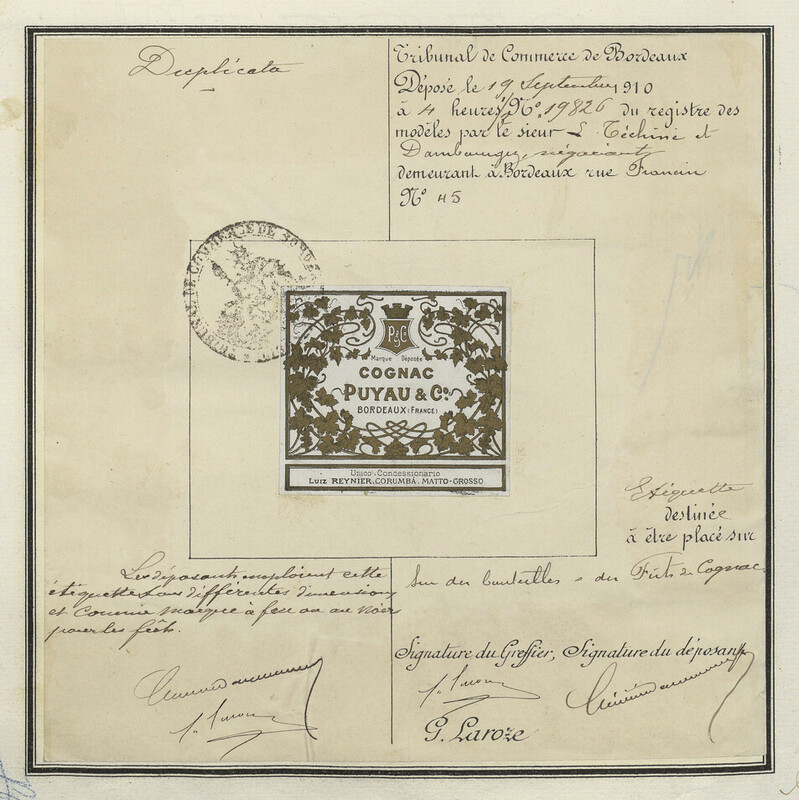 Duplicata
Tribunal de Commerce de Bordeaux
Déposé le 19 Septembre 1910
à 4 heures Nº 19826 du registre des
modèles par le sieur L. Téchiné et
négociants
demeurant à Bordeaux rue Francin
Nº 45
TRIBUNAL DE COMMERCE DE BORDEAUX
P & Cº
Marque Déposée
COGNAC
PUYAU & Cº
BORDEAUX (FRANCE)
Unico Concessionario
LUIZ REYNIER, CORUMBÁ, MATTO-GROSSO
Etiquette
destinée
à être placé sur
Sur des bouteilles & des Fûts de Cognac
Les déposants emploient cette
étiquette sous différentes dimensions
et comme marque à feu ou au noir
pour les fûts.
Signature du Greffier, Signature du déposant
G. Laroze